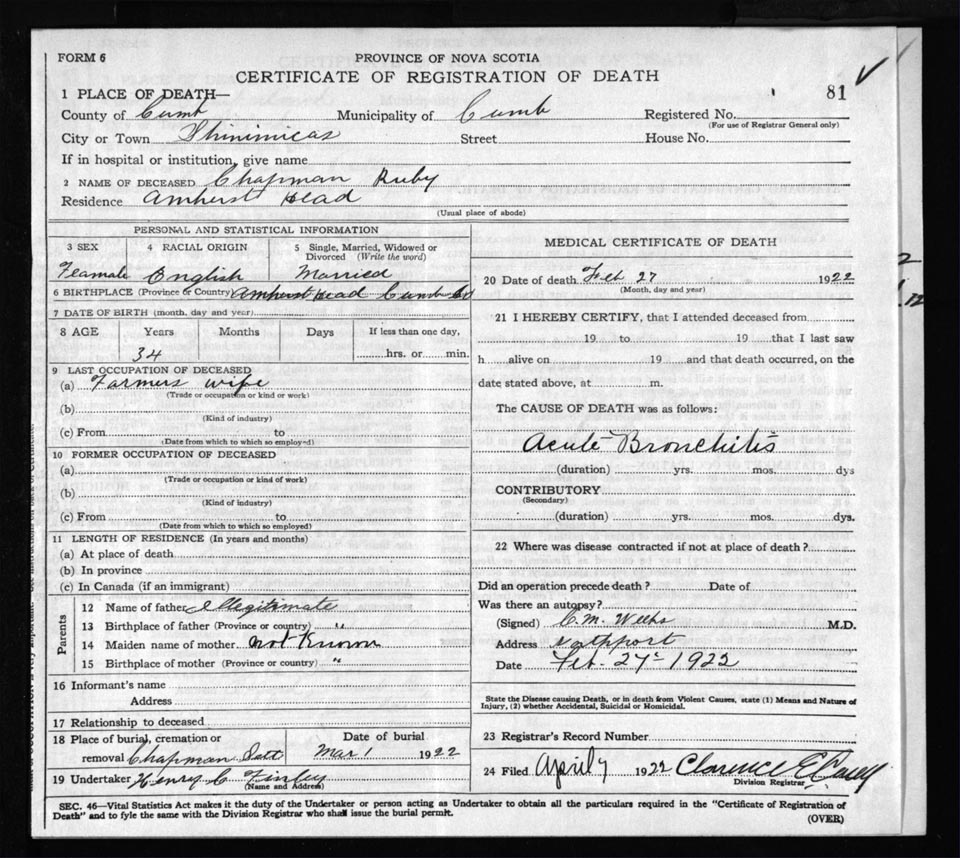 FORM 6
PROVINCE OF NOVA SCOTIA
CERTIFICATE OF REGISTRATION OF DEATH
81
1 PLACE OF DEATH—
County of Cumb Municipality of Cumb Registered No.
(For use of Registrar General only)
City or Town Shinimicas Street House No.
If in hospital or institution, give name
2 NAME OF DECEASED Chapman Ruby
Residence Amherst Head
(Usual place of abode)
PERSONAL AND STATISTICAL INFORMATION
3 SEX 4 RACIAL ORIGIN 5 Single, Married, Widowed or Divorced (Write the word)
Feamale English Married
6 BIRTHPLACE (Province or Country) Amherst Head
7 DATE OF BIRTH (month, day and year)
8 AGE Years Months Days If less than one day,
34 hrs. or min.
9 LAST OCCUPATION OF DECEASED
(a) Farmers wife
(Trade or occupation or kind or work)
(b)
(Kind of industry)
(c) From to
(Date from which to which so employed)
10 FORMER OCCUPATION OF DECEASED
(a)
(Trade or occupation or kind of work)
(b)
(Kind of industry)
(c) From to
(Date from which to which so employed)
11 LENGTH OF RESIDENCE (In years and months)
(a) At place of death
(b) In province
(c) In Canada (if an immigrant)
Parents
12 Name of father Illegitimate
13 Birthplace of father (Province or country) "
14 Maiden name of mother not Known
15 Birthplace of mother (Province or country) "
16 Informant's name
Address
17 Relationship to deceased
18 Place of burial, cremation or Date of burial
removal Chapman Sett Mar 1 1922
19 Undertaker Henry C Finley
(Name and Address)
MEDICAL CERTIFICATE OF DEATH
20 Date of death Feb 27 1922
(Month, day and year)
21 I HEREBY CERTIFY, that I attended deceased from
19 to 19 that I last saw
h alive on 19 and that death occurred, on the
date stated above, at m.
The CAUSE OF DEATH was as follows:
Acute Bronchitis
(duration) yrs. mos. dys
CONTRIBUTORY
(Secondary)
(duration) yrs. mos. dys.
22 Where was disease contracted if not at place of death?
Did an operation precede death? Date of
Was there an autopsy?
(Signed) C. M. Wells M.D.
Address Northport
Date Feb. 27 1922
State the Disease causing Death, or in death from Violent Causes, state (1) Means and Nature of
Injury, (2) whether Accidental, Suicidal or Homicidal.
23 Registrar's Record Number
24 Filed April 7 1922 Clarence E
Division Registrar
SEC. 46—Vital Statistics Act makes it the duty of the Undertaker or person acting as Undertaker to obtain all the particulars required in the "Certificate of Registration of
Death" and to fyle the same with the Division Registrar who shall issue the burial permit.
(OVER)